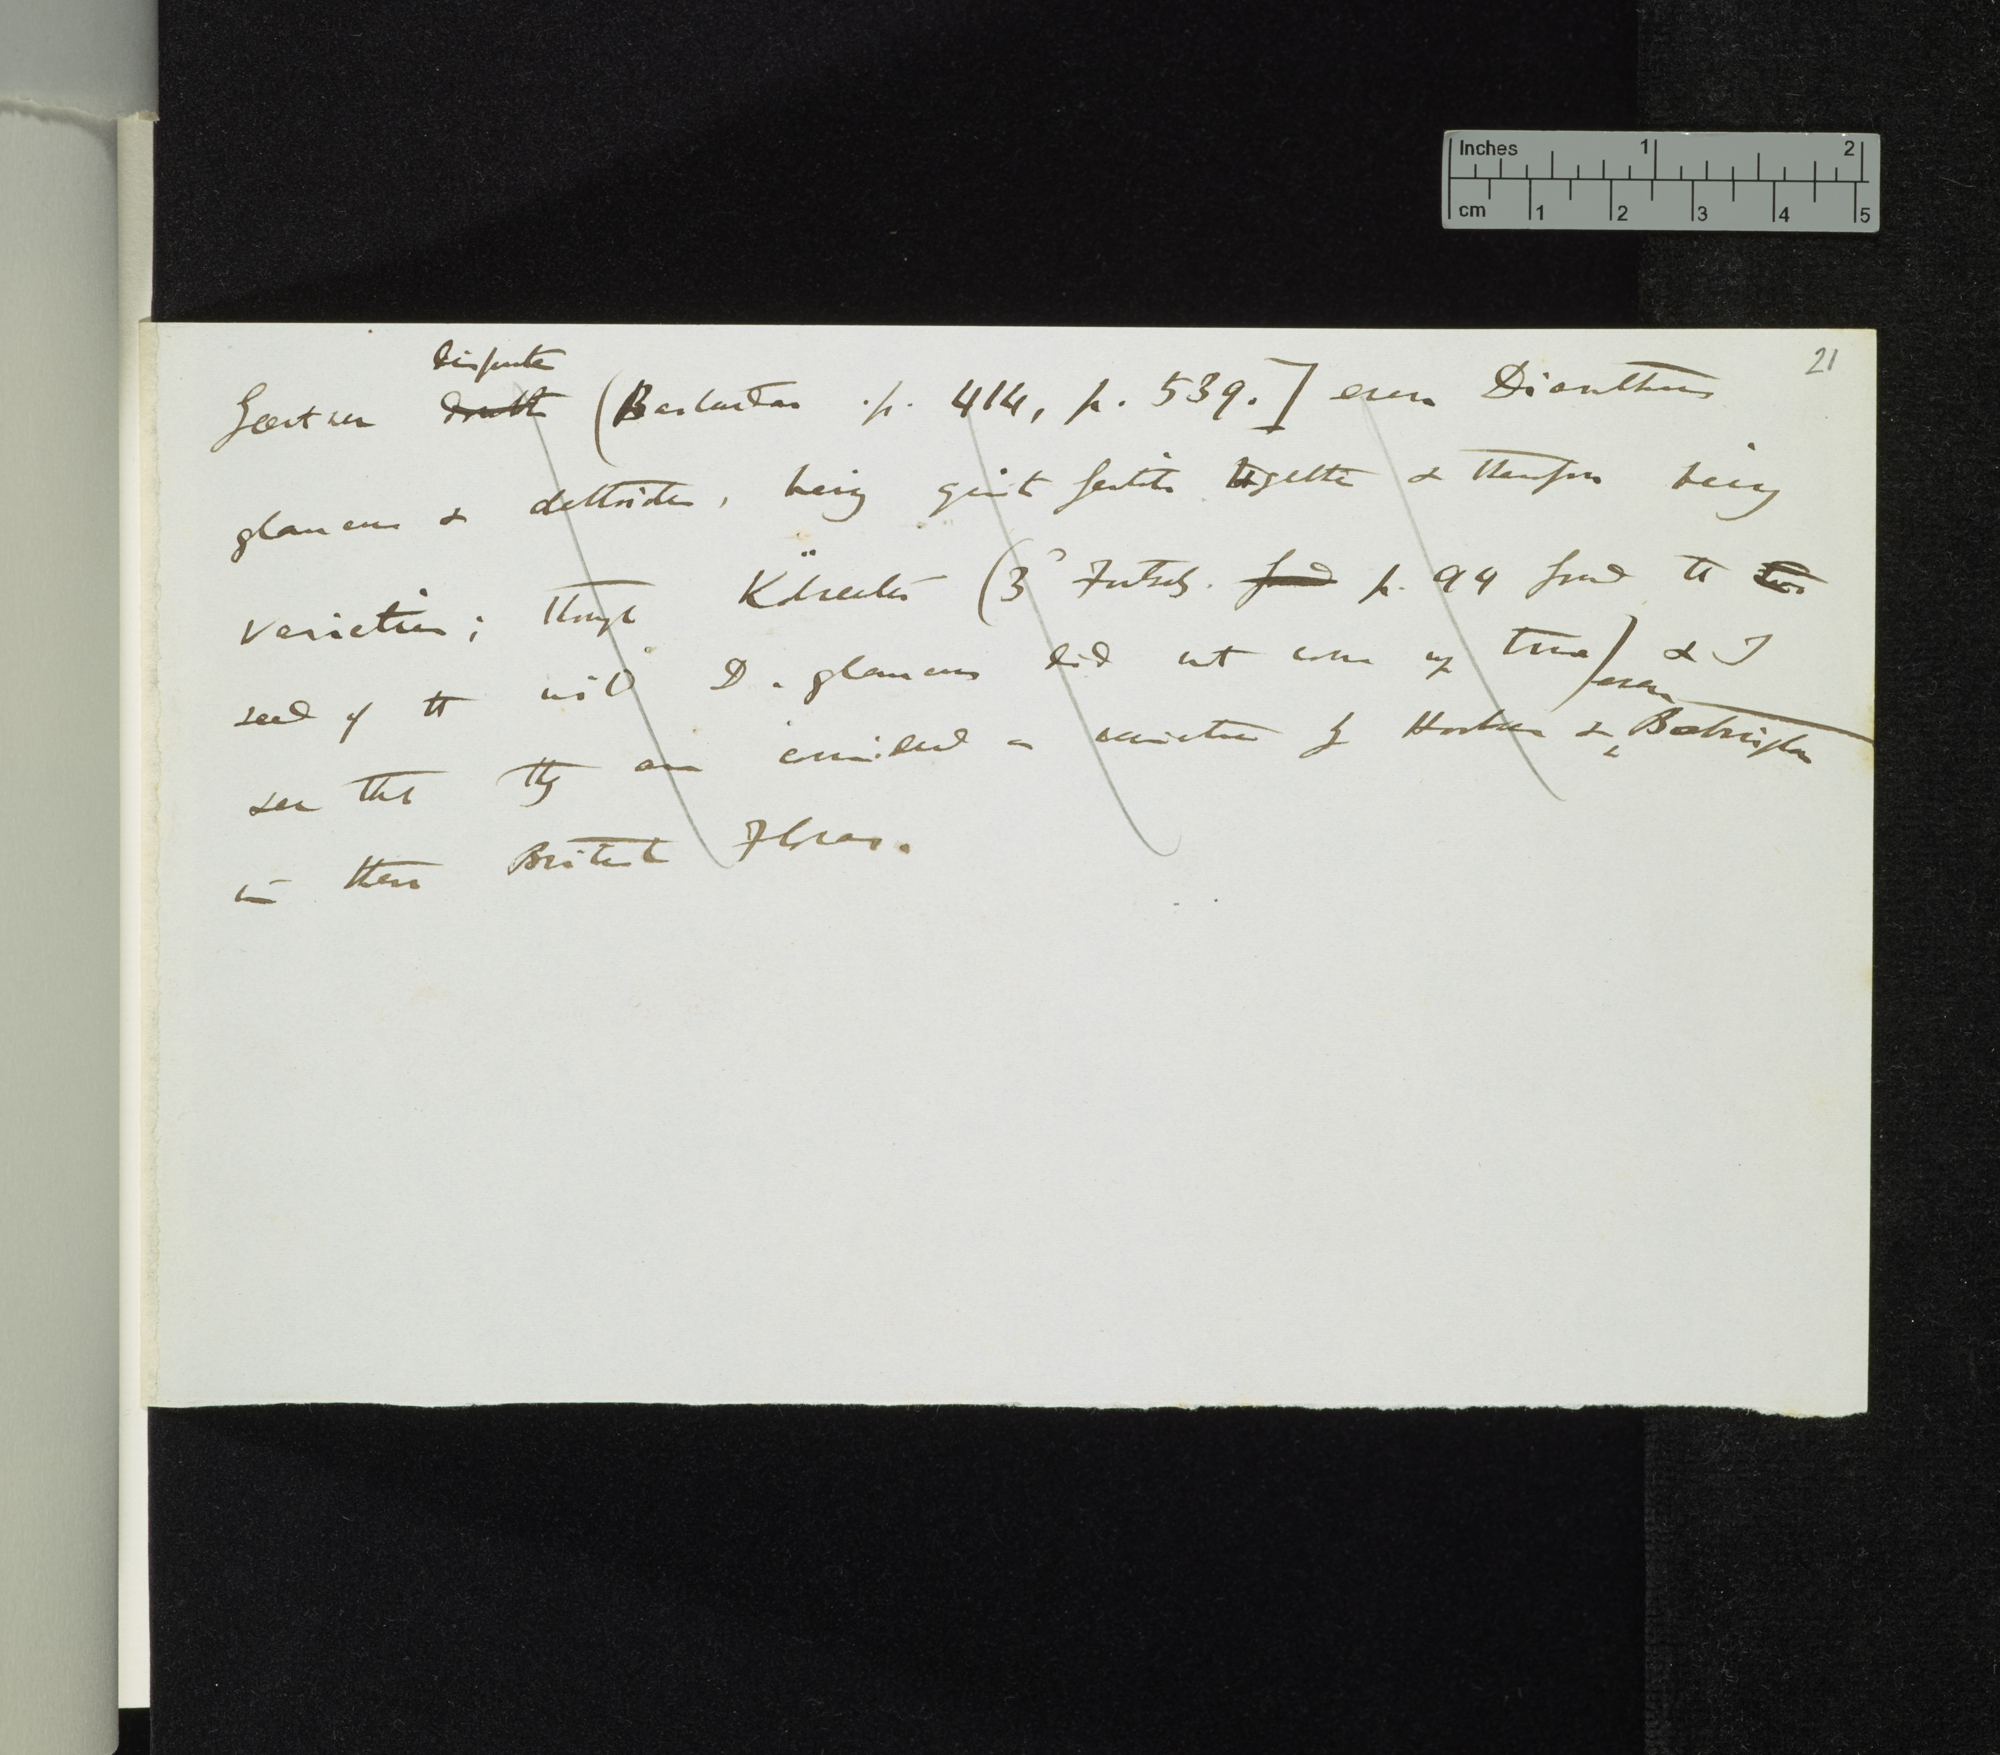 Inches 1 2
cm 1 2 3 4 5
21
dispute
Gærtner doubts (Bastardzu. p. 414, p. 539.] even Dianthus
glaucus & deltoides, being quite fertile together & therefore being
varieties; though Kölreuter (3d Fortsetz. found p. 94 found the
seed of the wild D. glaucus did not come up true) & I
even
see that they are considered as varieties by Hooker & Babington
in their British Floras.